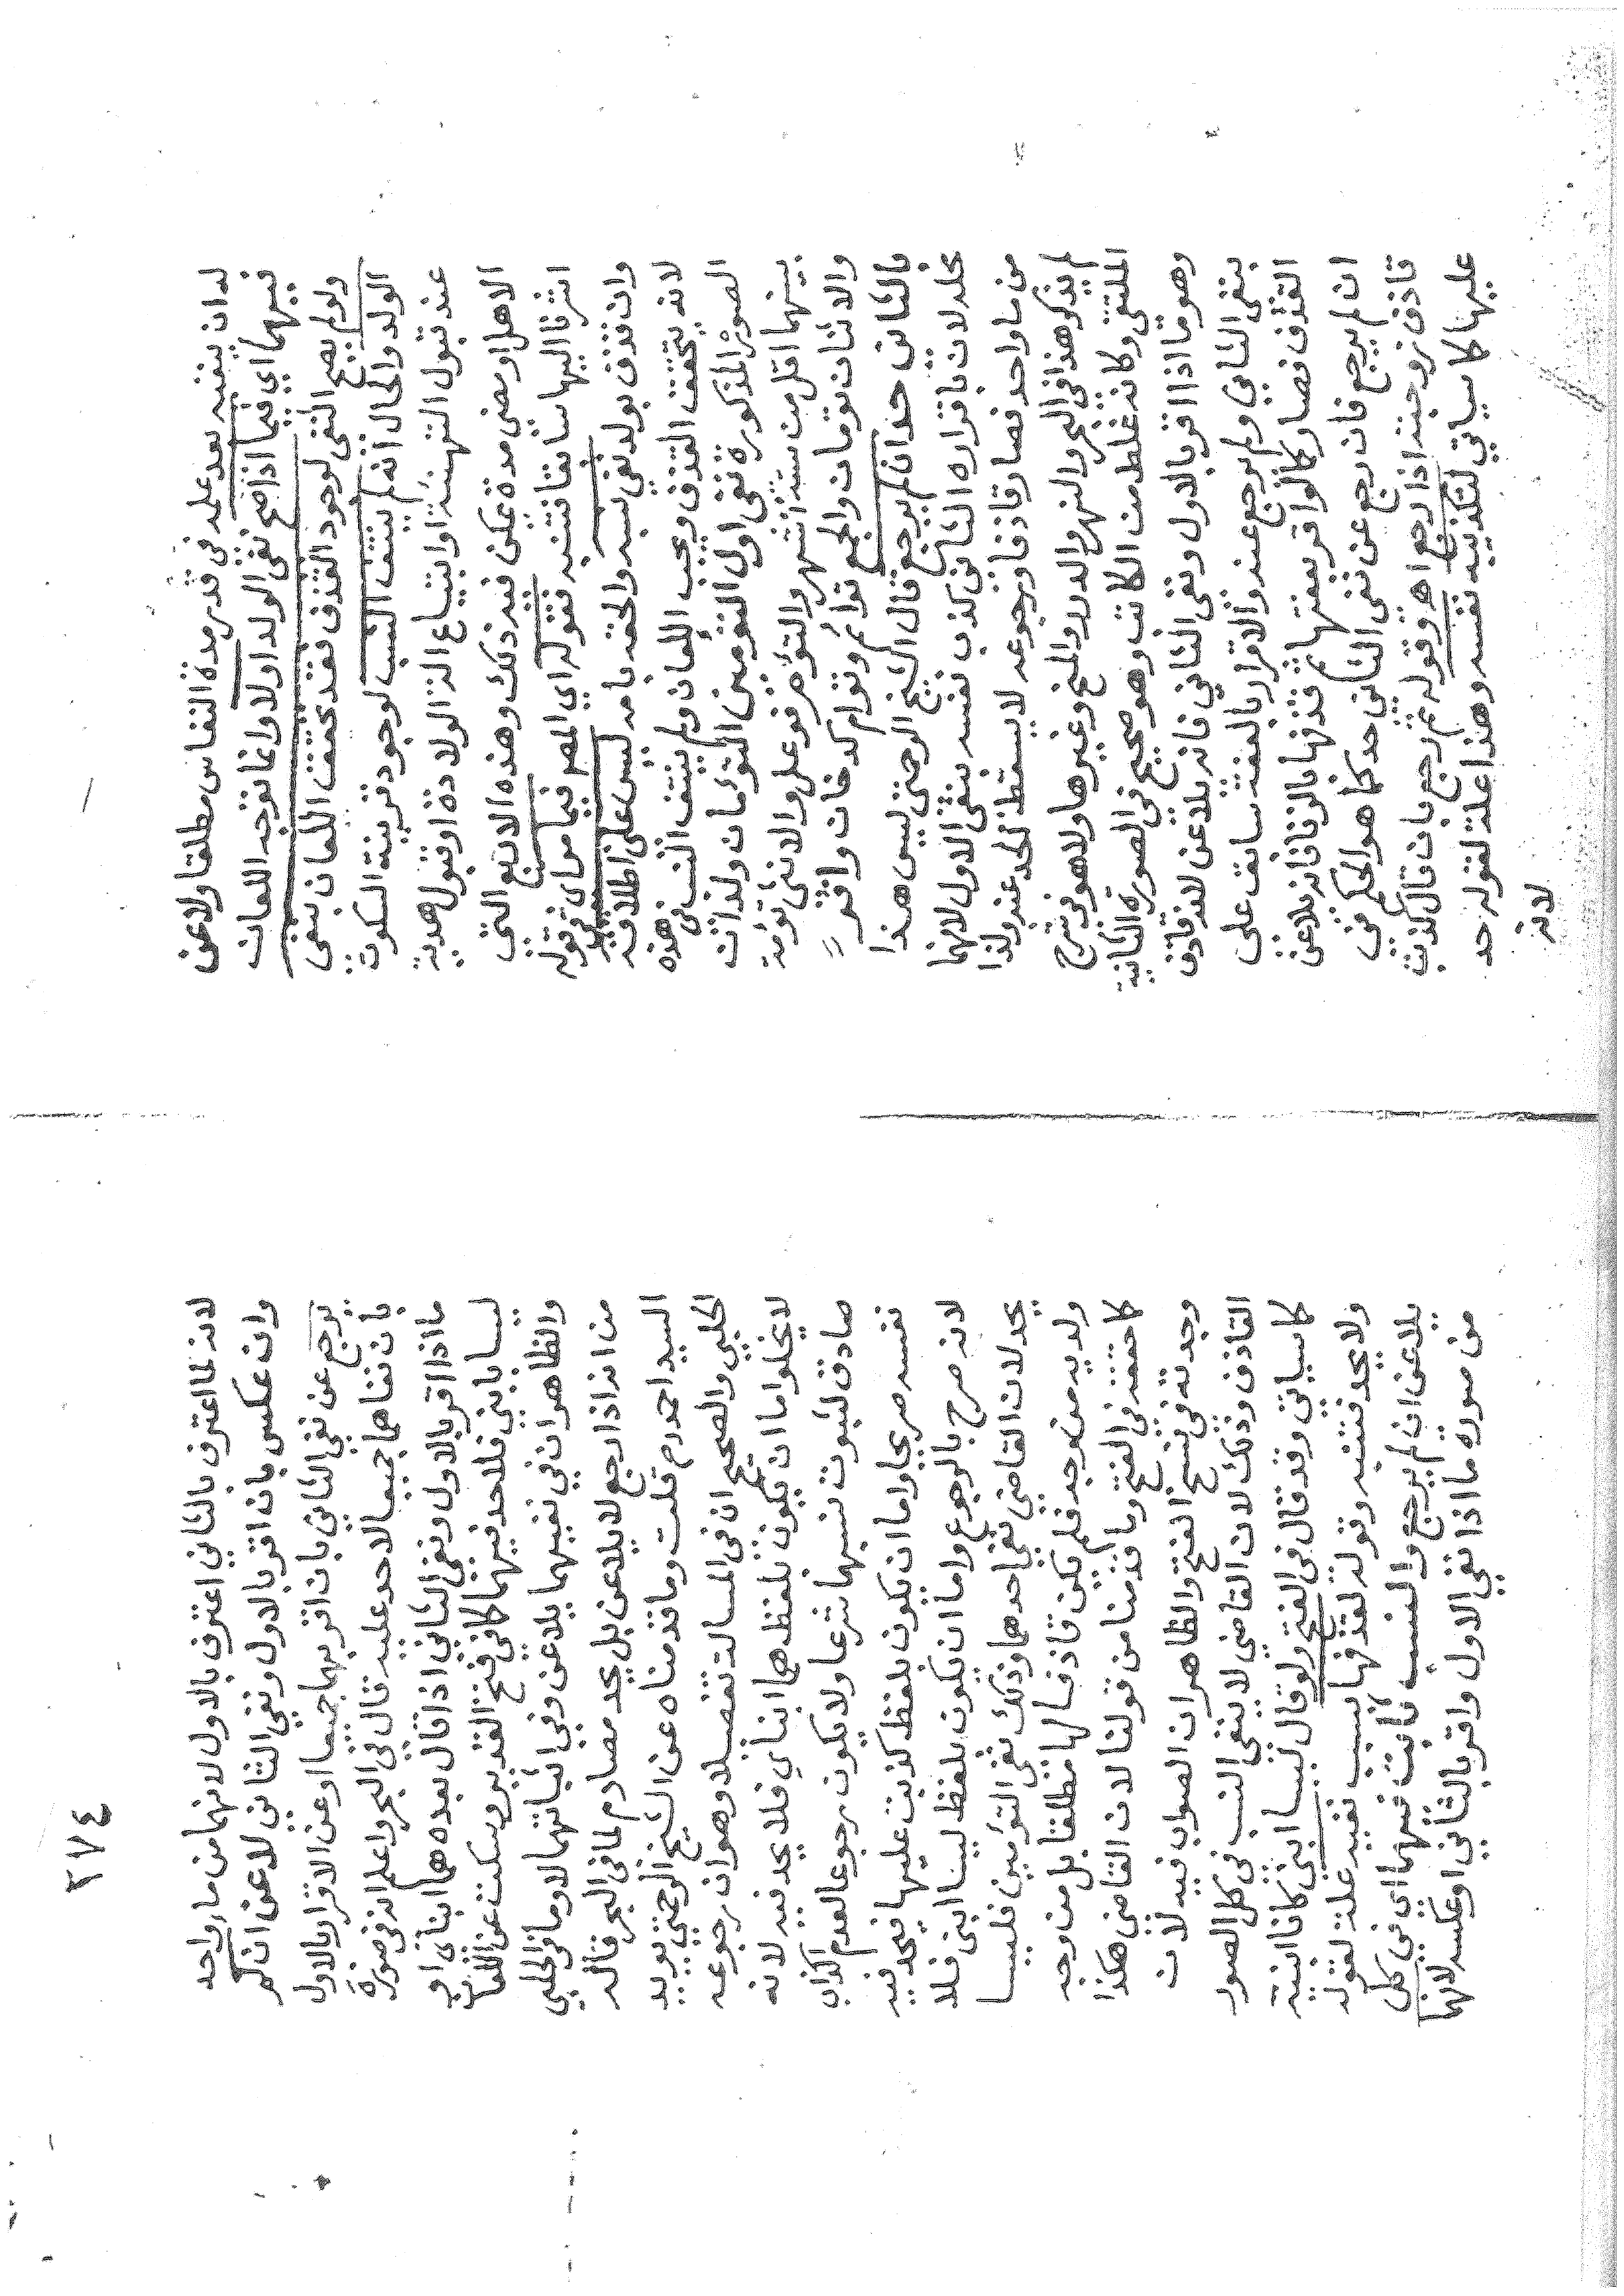 له ان ينفيه بعد علمه فى قدر مدة النفاس مطلقا ولاعن
فيهما اي فيما اذا صح نفى الولد اولا وانما توجه اللعان
ولو لم يصح النفى لوجود القذف فقد تحقق اللعان بنفى
الولد والحال انه لم ينتف النسب لوجود قرينة السكوت
عند قبول التهنئة او ابتياع الة الولادة او قبول هدية
الاهل او مضى مدة يمكن فيه ذلك وهذه الاربع التى
اشرنا اليها سابقا فتنبه فقوله اي المص فيما مر اي قوله
وان قذف بولد نفى نسبه والحقه بامه ليس على اطلاقه
لانه يتحقق القذف ويجب اللعان ولم ينتف النسب فى هذه
الصور المذكورة نفى اول التوءمين التوئمان ولدان
بينهما اقل من ستة اشهر والتوءم فوعل والانثى توءمة
والاثنان توءمان والجمع توائم وتوام كدخان واقر =
بالثانى حد ان لم يرجع قال الشيخ الرحمتى ليس هذا
بحله لان باقراره الثانى كذب نفسه بنفى الاول لانهما
من ماء واحد فصار قاذفا ورجوعه لا يسقط الحد عنه ولذا
لم يذكر هذا فى البحر والنهر والدرر والمنح وغيرها ولا هو فى شرح
الملتقى وكانه غلط من الكاتب وهو صحيح فى الصورة الثانية
وهو ما اذا اقر بالاول ونفى الثاني فانه يلاعن لانه قاذف
بنفى الثاني ولم يرجع عنه والاقرار بالعفة سابق على
القذف فصار كما لو اقر بعفتها ثم قذفها بالزنا فانه يلاعن
ان لم يرجع فان رجع عن نفى الثانى حد كما هو الحكم في
قاذف زوجته اذا رجع اهـ وقوله ثم رجع بان قال كذبت
عليها كما سياتي لتكذيبه نفسه وهذا علة لقوله حد
لانه
٢٧٤
لانه لما اعترف بالثاني اعترف بالاول لانهما من ماء واحد
وان عكس بان اقر بالاول ونفى الثاني لاعن ان لم
يرجع عن نفى الثانى بان اقر بهما جميعا او عن الاقرار بالاول
بان نفاهما جميعا لاحد عليه قال في البحر واعلم انه فى صورة
ما اذا اقر بالاول ونفى الثاني اذا قال بعده هما ابناى او
ليسا بابني فلا حد فيهما كما في فتح القدير وسكت عن اللعان
والظاهر ان في نفيهما يلاعن وفي اثباتهما لا وما فى الحلبي
من انه اذا رجع لا يلاعن بل يحد مصادم لما فى البحر قاله
السيد احمد رم قلت وما قدمناه عن الشيخ الرحمتي يويد
الحلبي والصحيح ان فى المسالة تفصيلا وهو ان رجوعه
لا يخلوا ما ان يكون بلفظ هما ابناي فلا يحد فيه لانه
صادق لثبوت نسبهما شرعا ولا يكون رجوعا لعدم اكذاب
نفسه صريحا واما ان يكون بلفظ كذبت عليها فيحد فيه
لانه صرح بالرجوع واما ان يكون بلفظ ليسا ابنى فلا
يحد لان القاضي نفى احدهما وذلك نفى التوءمين فليسا
ولديه من وجه فلم يكن قاذفا لها مطلقا بل من وجه
كما حققه فى الفتح وما قدمنا من قولنا لان القاضى هكذا
وجدته فى نسخ الفتح والظاهر ان الصواب فيه لان
القاذف وذلك لان القاضي لا ينفى النسب في كل الصور
كما سياتى وقد قال فى الفتح ولو قال ليسا ابنى كانا ابنيه
ولا يحد فتنبه وقوله لقذفها بسبب نفيه علة لقوله
يلاعن ان لم يرجع والنسب ثابت فيهما اي في كل
من صورة ما اذا نفى الاول واقر بالثاني او عكسه لانهما